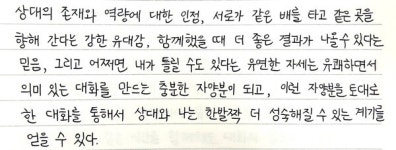 상대의 존재와 역량에 대한 인정, 서로가 같은 배를 타고 같은 곳을
향해 간다는 강한 유대감, 함께했을 때 더 좋은 결과가 나올수 있다는
믿음, 그리고 어쩌면 내가 틀릴 수도 있다는 유연한 자세는 유쾌하면서
의미 있는 대화를 만드는 충분한 자양분이 되고, 이런 자양분을 토대로
한 대화를 통해서 상대와 나는 한발짝 더 성숙해질 수 있는 계기를
얻을 수 있다.